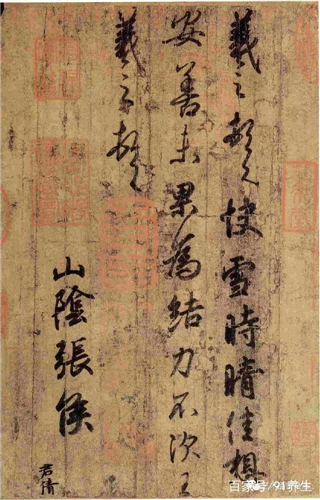 羲之頓首快雪時晴佳想
安善未果為結力不次王
羲之頓首
山陰張侯
君倩
百家号/91养生